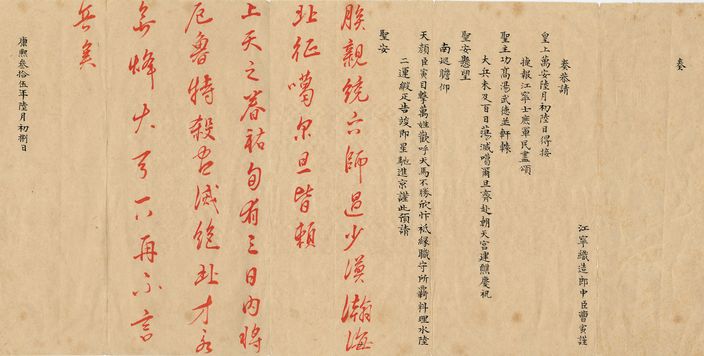 奏
江寧織造郎中臣曹寅謹
奏恭請
皇上萬安陸月初陸日得接
捷報江寧士庶軍民盡頌
聖主功高湯武德並軒轅
大兵未及百日蕩滅噶爾旦齊赴朝天宮建醮慶祝
聖安懸望
南廵瞻仰
天顏臣寅目擊萬姓歡呼天馬不勝欣忭祗緣職守所覊料理水陸
二運緞疋告竣即星馳進京謹此預請
聖安
朕親統六師過少漠瀚海
北征噶尔旦皆賴
上天之眷祐旬有三日內將
厄魯特殺盡滅絕北才永
無烽火了一再不言
兵矣
康熙叁拾伍年陸月初捌日